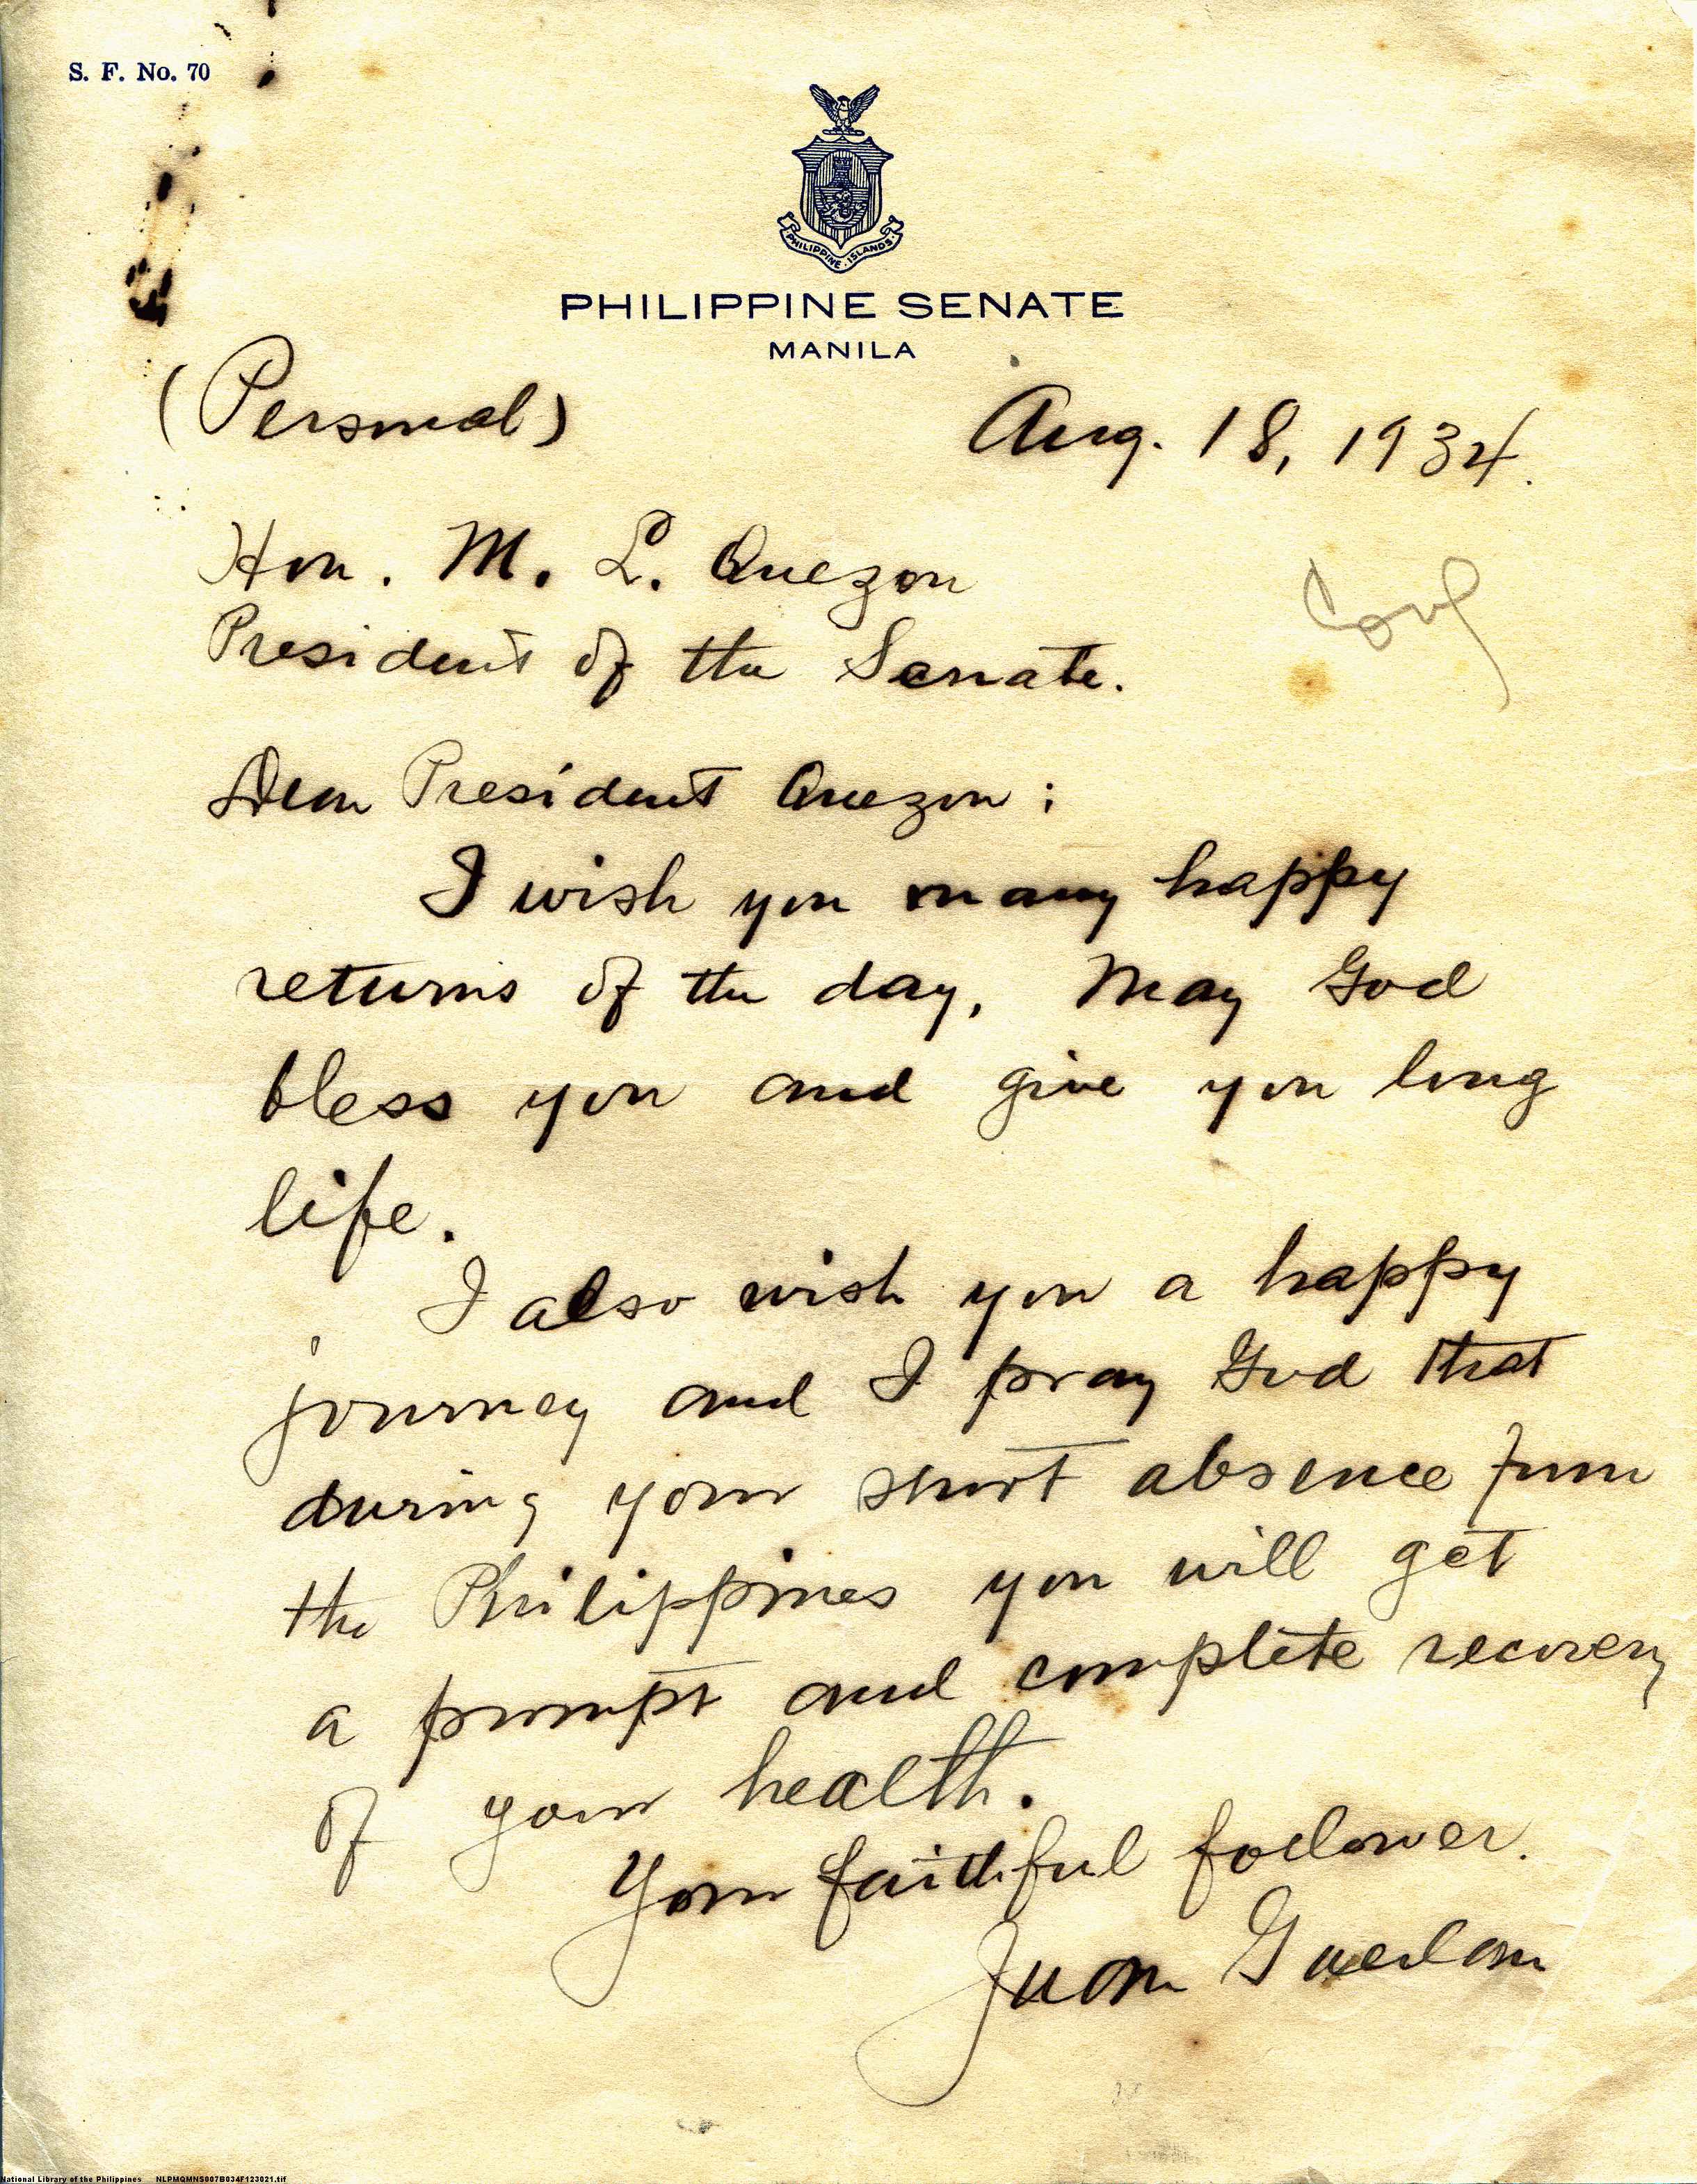 S. F. No. 70
PHILIPPINE ISLANDS
PHILIPPINE SENATE
MANILA
(Personal)
Aug. 18, 1934.
Hon. M. L. Quezon
President of the Senate.
Dear President Quezon:
I wish you many happy
returns of the day. May God
bless you and give you long
life.
I also wish you a happy
journey and I pray God that
during your short absence from
the Philippines you will get
a prompt and complete recovery
of your health.
Your faithful follower.
Juan
National Library of the Philippines NLPMQMNS007B034F123021.tif